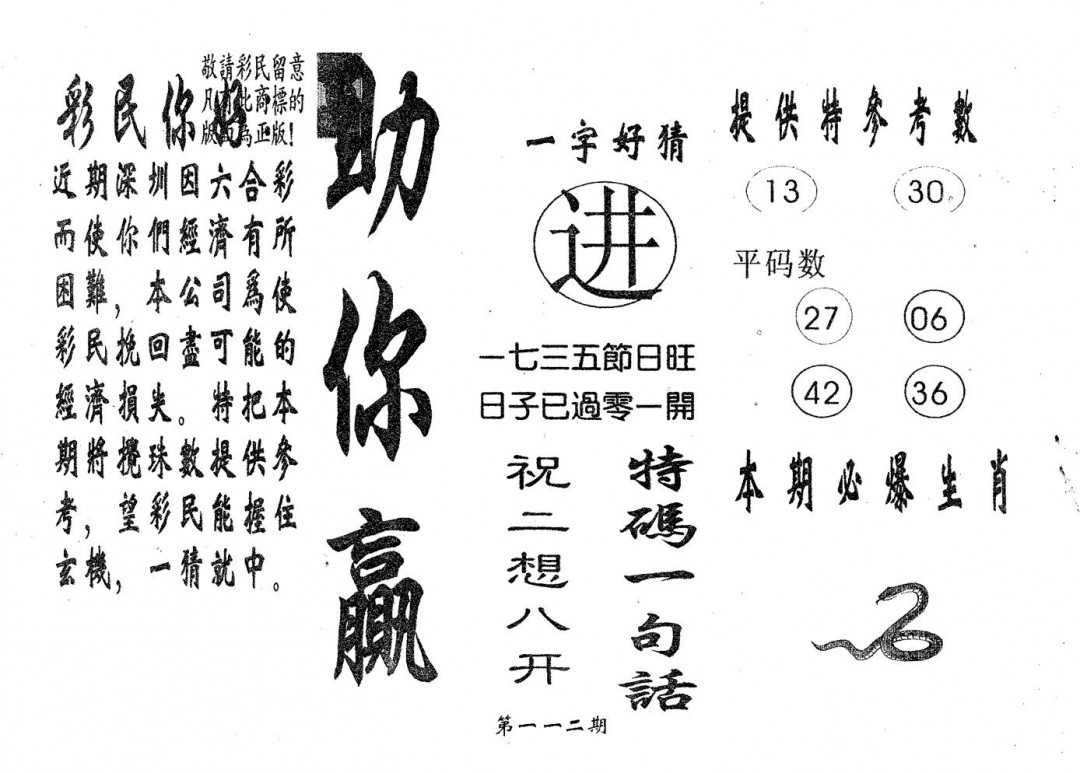 敬請彩民留意
凡有此商標的
版面為正版!
彩民你好
近期深圳因六合彩
而使你們經濟有所
困難，本公司爲使
彩民挽回盡可能的
經濟損失。特把本
期將攪珠數提供參
考，望彩民能握住
玄機，一猜就中。
助你贏
一字好猜
进
一七三五節日旺
日子已過零一開
特碼一句話
祝二想八开
第一一二期
提供特參考數
13 30
平码数
27 06
42 36
本期必爆生肖